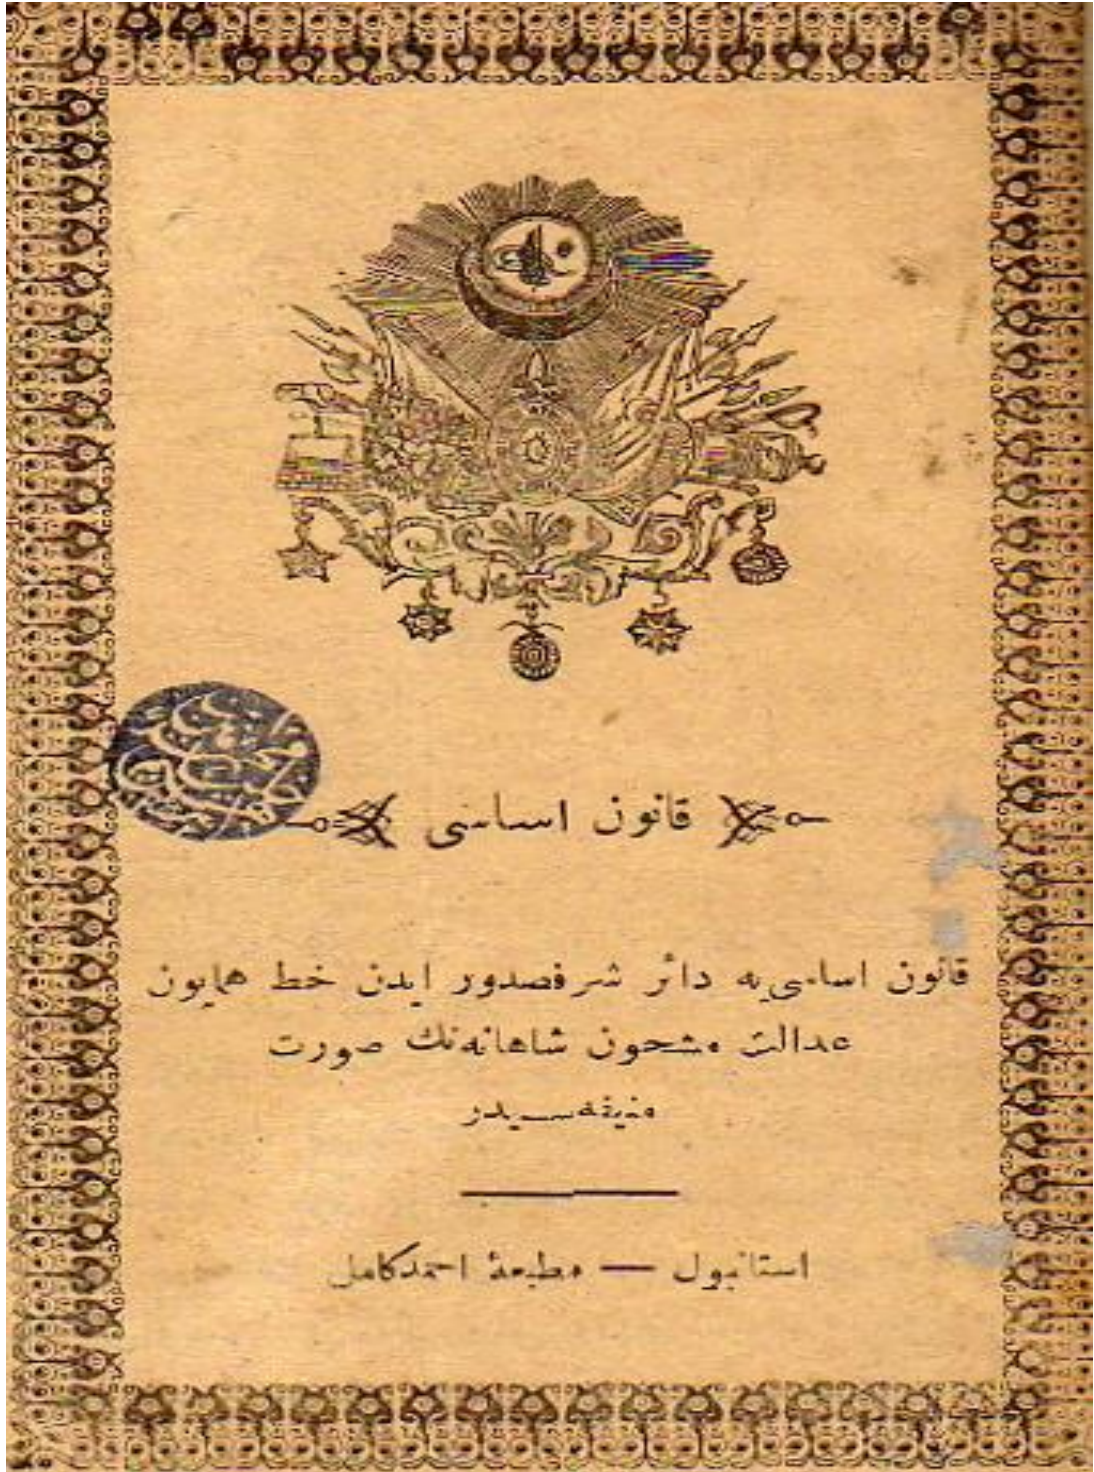 قانون اساسی
قانون اساسی‌یه دائر شرفصدور ایدن خط همایون
عدالت مشحون شاهانه‌نك صورت
منیفه‌سیدر
استانبول — مطبعهٔ احمدکامل